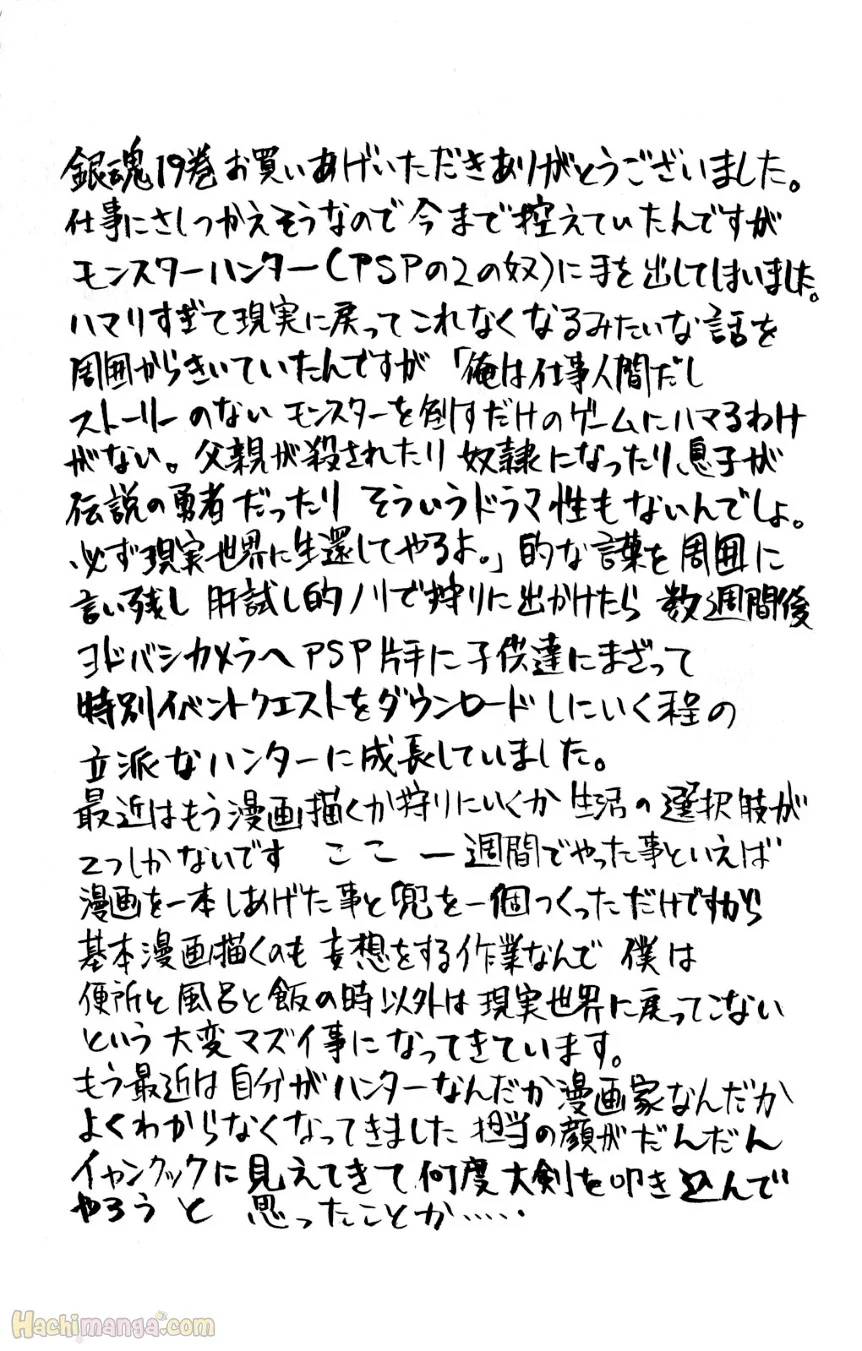 銀魂19巻お買いあげいただきありがとうございました。
仕事にさしつかえそうなので今まで控えていたんですが
モンスターハンター(PSPの2の奴)に手を出してしまいました。
ハマりすぎて現実に戻ってこれなくなるみたいな話を
周囲からきいていたんですが「俺は仕事人間だし
ストーリーのないモンスターを倒すだけのゲームにハマるわけ
がない。父親が殺されたり奴隷になったり、息子が
伝説の勇者だったり そういうドラマ性もないんでしょ。
必ず現実世界に生還してやるよ。」的な言葉を周囲に
言い残し 肝試し的ノリで狩りに出かけたら 数週間後
ヨドバシカメラへPSP片手に子供達にまざって
特別イベントクエストをダウンロードしにいく程の
立派なハンターに成長していました。
最近はもう漫画描くか狩りにいくか生活の選択肢が
2つしかないです ここ一週間でやった事といえば
漫画を一本しあげた事と兜を一個つくっただけですから
基本漫画描くのも妄想をする作業なんで 僕は
便所と風呂と飯の時以外は現実世界に戻ってこない
という大変マズイ事になってきています。
もう最近は自分がハンターなんだか漫画家なんだか
よくわからなくなってきました 担当の顔がだんだん
イャンクックに見えてきて何度大剣を叩き込んで
やろうと 思ったことか……
Hachimanga.com